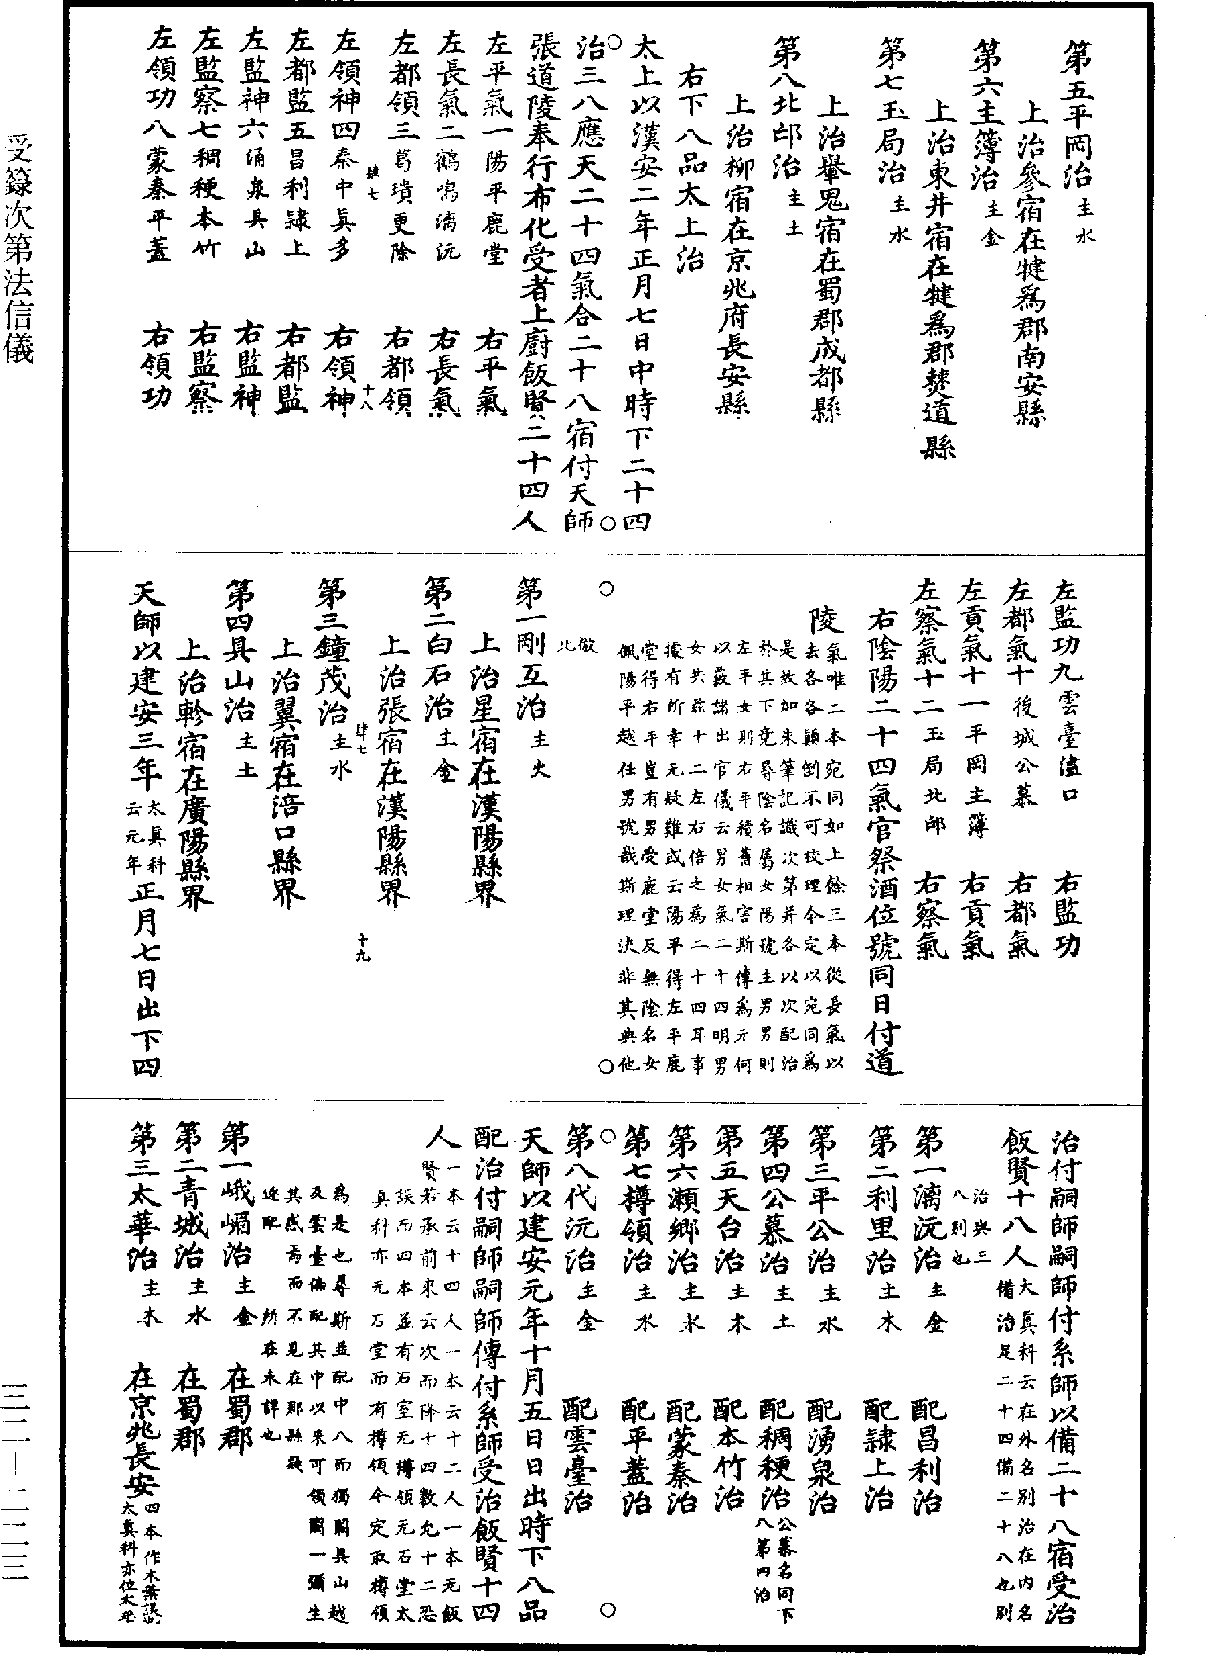 第五平岡治主水
上治參宿在犍爲郡南安縣
第六主簿治主金
上治東井宿在犍爲郡僰道縣
第七玉局治主水
上治轝鬼宿在蜀郡成都縣
第八北邙治主土
上治柳宿在京兆府長安縣
右下八品太上治
太上以漢安二年正月七日中時下二十四
治三八應天二十四氣合二十八宿付天師
張道陵奉行布化受者上廚飯賢二十四人
左平氣一陽平鹿堂 右平氣
左長氣二鶴鳴漓沅 右長氣
左都領三葛璝更除 右都領
肆七 十八
左領神四秦中真多 右領神
左都監五昌利隸上 右都監
左監神六涌泉具山 右監神
左監察七稠稉本竹 右監察
左領功八蒙秦平蓋 右領功
左監功九雲臺濜口 右監功
左都氣十後城公慕 右都氣
左貢氣十一平岡主簿 右貢氣
左察氣十二玉局北邙 右察氣
右陰陽二十四氣官祭酒位號同日付道
陵
氣唯二本宛同如上餘三本從長氣以
去各各顛倒不可按理今定以宛同爲
是故如朱筆記識次第并各以次配治
於其下竟尋陰名屬女陽號主男男則
左平女則右平積舊相害斯傳爲亓何
以蔽諸出官儀云男女氣二十四明男
女共並十二左右倍之爲二十四耳事
據有所幸无疑難或云陽平得左平鹿
堂得右平豈有男受鹿堂反無陰名女
佩陽平越任男號哉斯理決非其與他
倣北
第一剛互治主火
上治星宿在漢陽縣界
第二白石治主金
上治張宿在漢陽縣界
肆七 十九
第三鐘茂治主水
上治翼宿在涪口縣界
第四具山治主土
上治軫宿在廣陽縣界
天師以建安三年太真科云元年正月七日出下四
治付嗣師嗣師付系師以備二十八宿受治
飯賢十八人太真科云在外名別治在内名備治足二十四備二十八也別
治與三八別也
第一漓沅治主金 配昌利治
第二利里治主木 配隸上治
第三平公治主水 配湧泉治
第四公慕治主土 配稠稉治公慕名同下八第四治
第五天台治主木 配本竹治
第六瀨鄉治主水 配蒙秦治
第七樽領治主水 配平蓋治
第八代沅治主金 配雲臺治
天師以建安元年十月五日日出時下八品
配治付嗣師嗣師傳付系師受治飯賢十四
人
一本云十四人一本云十二人一本无飯
賢若承前來云次而降十四數允十二恐
誤而四本並有石室无樽領元石堂太
真科亦元石堂而有樽領今定取樽領
爲是也尋斯並配中八而獨闕具山越
及雲臺備配其中以來可領闕一彌生
其惑焉而不見在那縣疑
近配所在未詳也
第一峨嵋治主金 在蜀郡
第二青城治主水 在蜀郡
第三太華治主木 在京兆長安四本作木葉誤太真科亦位太華
受籙次第法信儀
三二—二二三